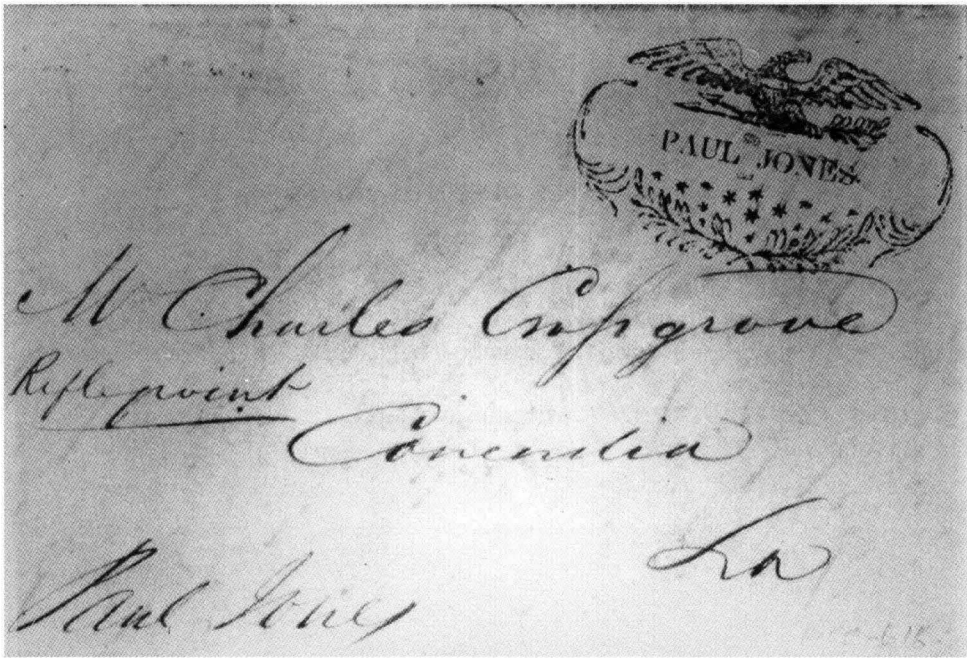 PAUL JONES.
Mr Charles Cosgrove
Riflepoint
Concordia
La
Paul Jones